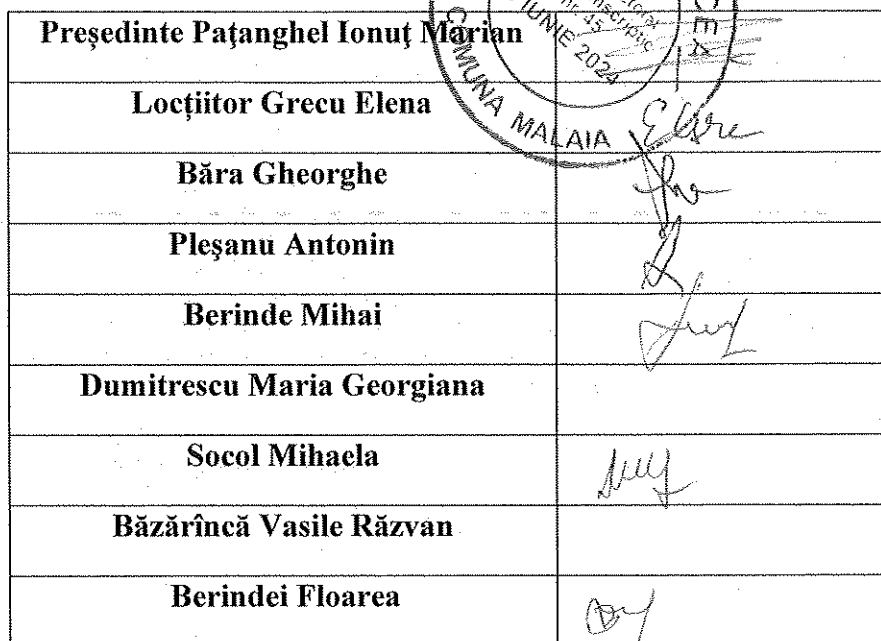 Președinte Paţanghel Ionuţ Marian
Locțiitor Grecu Elena
Băra Gheorghe
Pleșanu Antonin
Berinde Mihai
Dumitrescu Maria Georgiana
Socol Mihaela
Băzărîncă Vasile Răzvan
Berindei Floarea
nr. 45
IUNIE 2024
COMUNA MALAIA